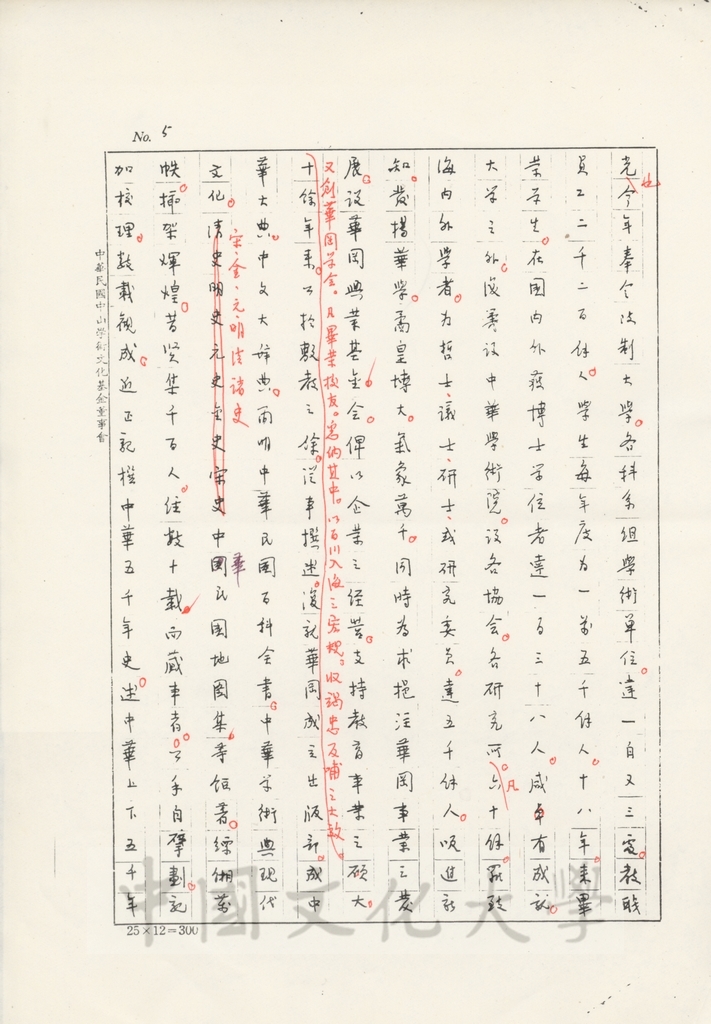 No. 5
光今年奉令改制大學。各科系組學術單位。達一百又三處。教職
也
員工二千二百餘人。學生每年度為一萬五千餘人。十八年來畢
業學生。在國內外獲博士學位者達一百三十八人。咸卓有成就。
大學之外。復籌設中華學術院。設各協會。各研究所。六十餘。羅致
凡
海內外學者。為哲士、議士、研士、或研究委員。達五千餘人。吸進新
知。發揚華學。矞皇博大。氣象萬千。同時為求挹注華岡事業之發
展。設華岡興業基金會。俾以企業之經營。支持教育事業之碩大。
又創華岡學會。凡畢業校友。悉納其中。以百川入海之宏規。收鴻忠反哺之大效。
十餘年來。公於敷教之餘。從事撰述。復就華岡成立出版部。成中
華大典。中文大辭典。簡明中華民國百科全書。中華學術與現代
文化。清史明史元史金史宋史中國民國地圖集等鉅著。縹緗萬
宋、金、元、明、清諸史
華
帙。插架輝煌。昔賢集千百人。任數十載而蕆事者。公手自擘劃。記
加校理。數載觀成。近正親撰中華五千年史。述中華上下五千年
中華民國中山學術文化基金董事會
25×12=300
中國文化大學